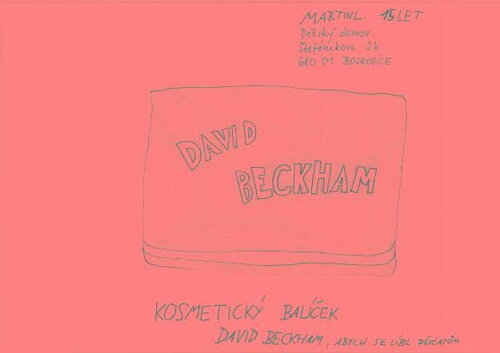 MARTIN L. 15 LET
Dětský domov
Štefánikova 26
680 01 BOSKOVICE
DAVID
BECKHAM
KOSMETICKÝ BALÍČEK
DAVID BECKHAM, ABYCH SE LÍBIL DĚVČATŮM